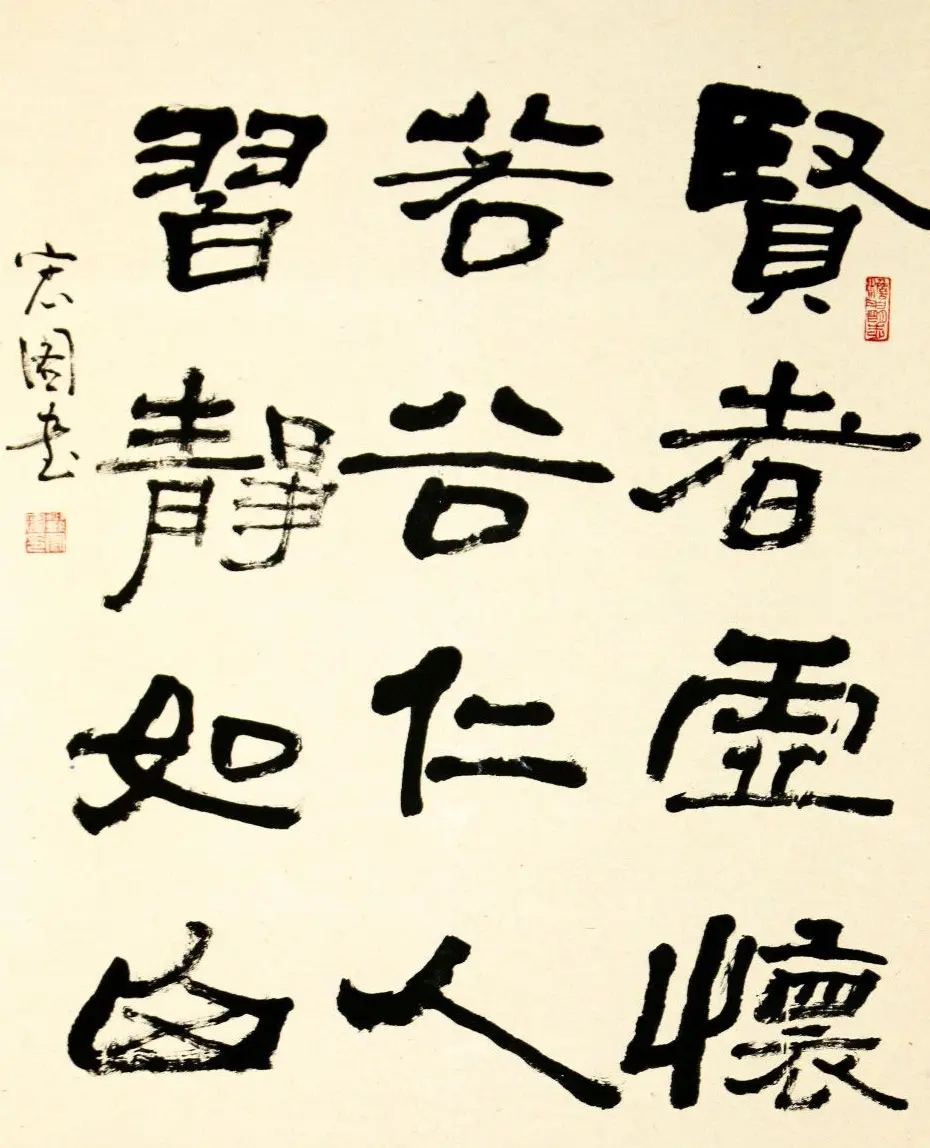 賢者虛懷
若谷仁人
習靜如山
宏圖書